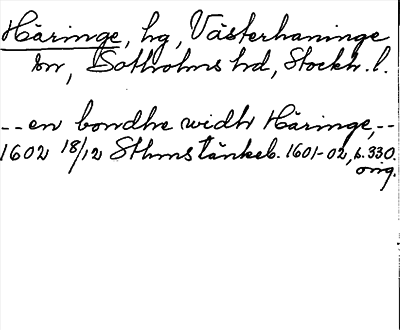 Häringe, hg, Västerhaninge
sn, Sotholms hd, Stockh. l.
--en bondhe widh Häringe,--
1602 18/12 Sthms tänkeb. 1601-02, s. 330.
orig.